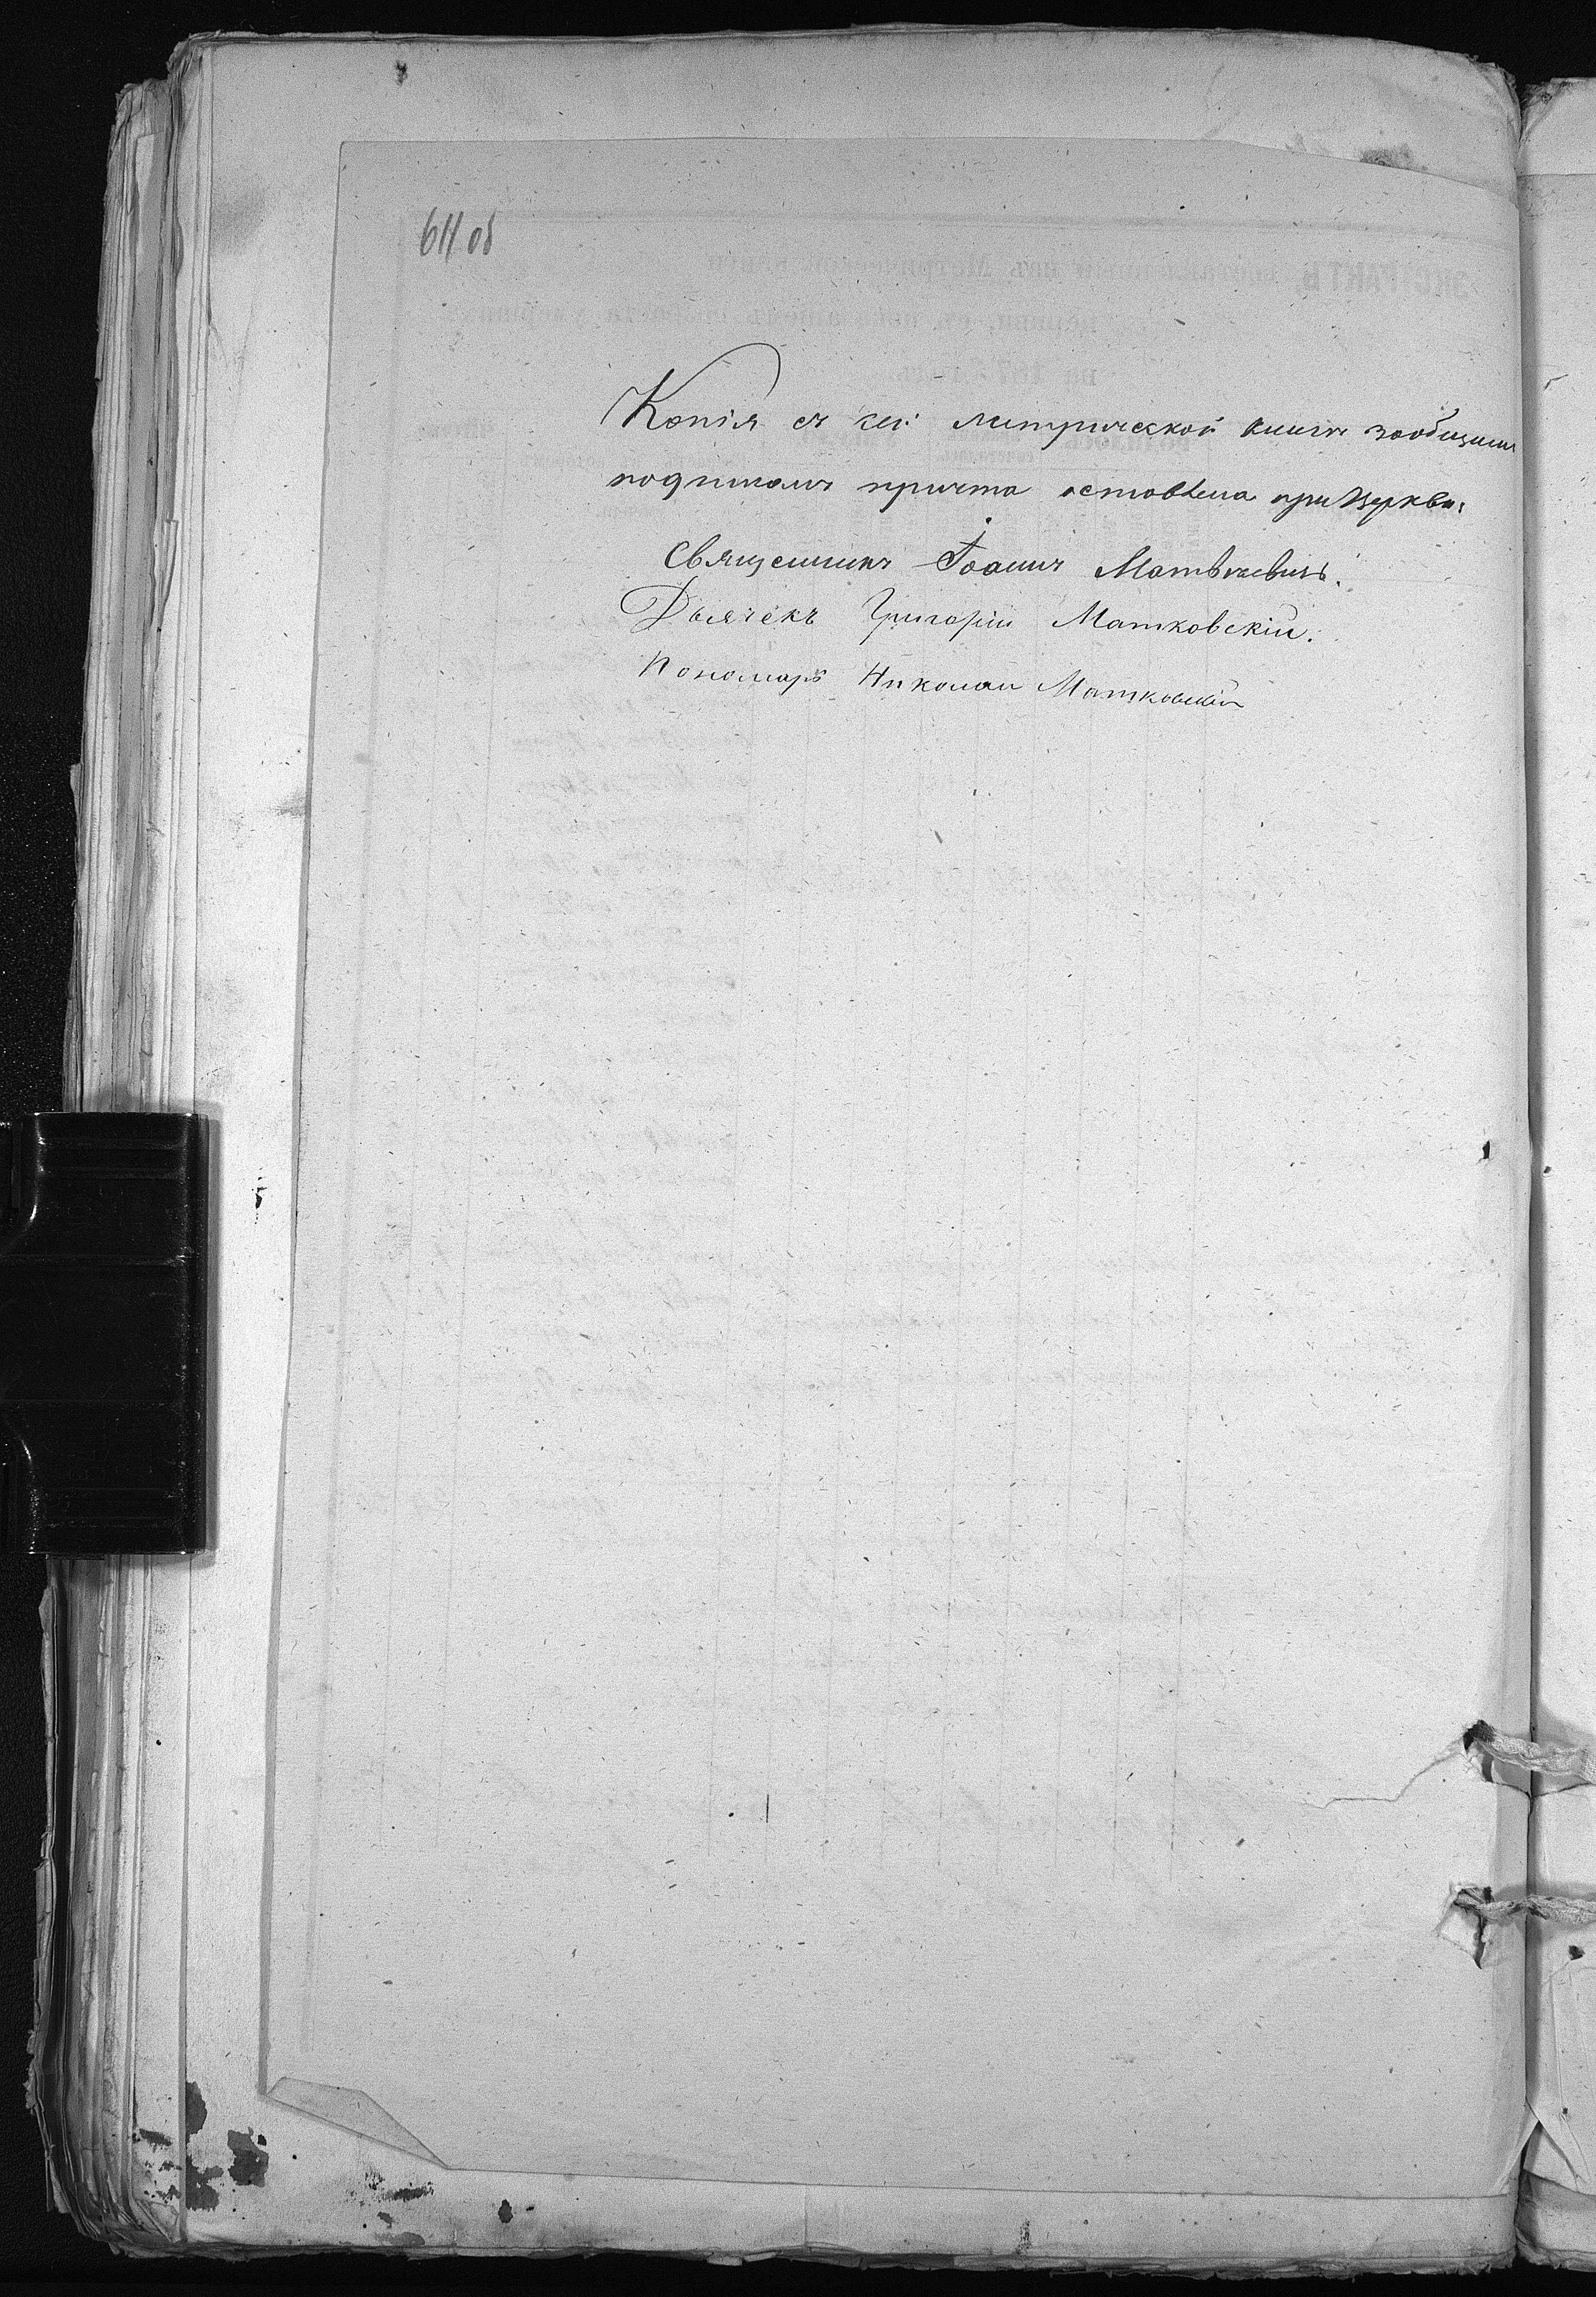 611 об
Копія съ сей метрической книги заобщимъ
подписомъ причта оставлена при Церкви.
Священникъ Іоаннъ Матвѣевичъ.
Дьячекъ Григорій Матковскій.
Пономарь Николай Матковскій